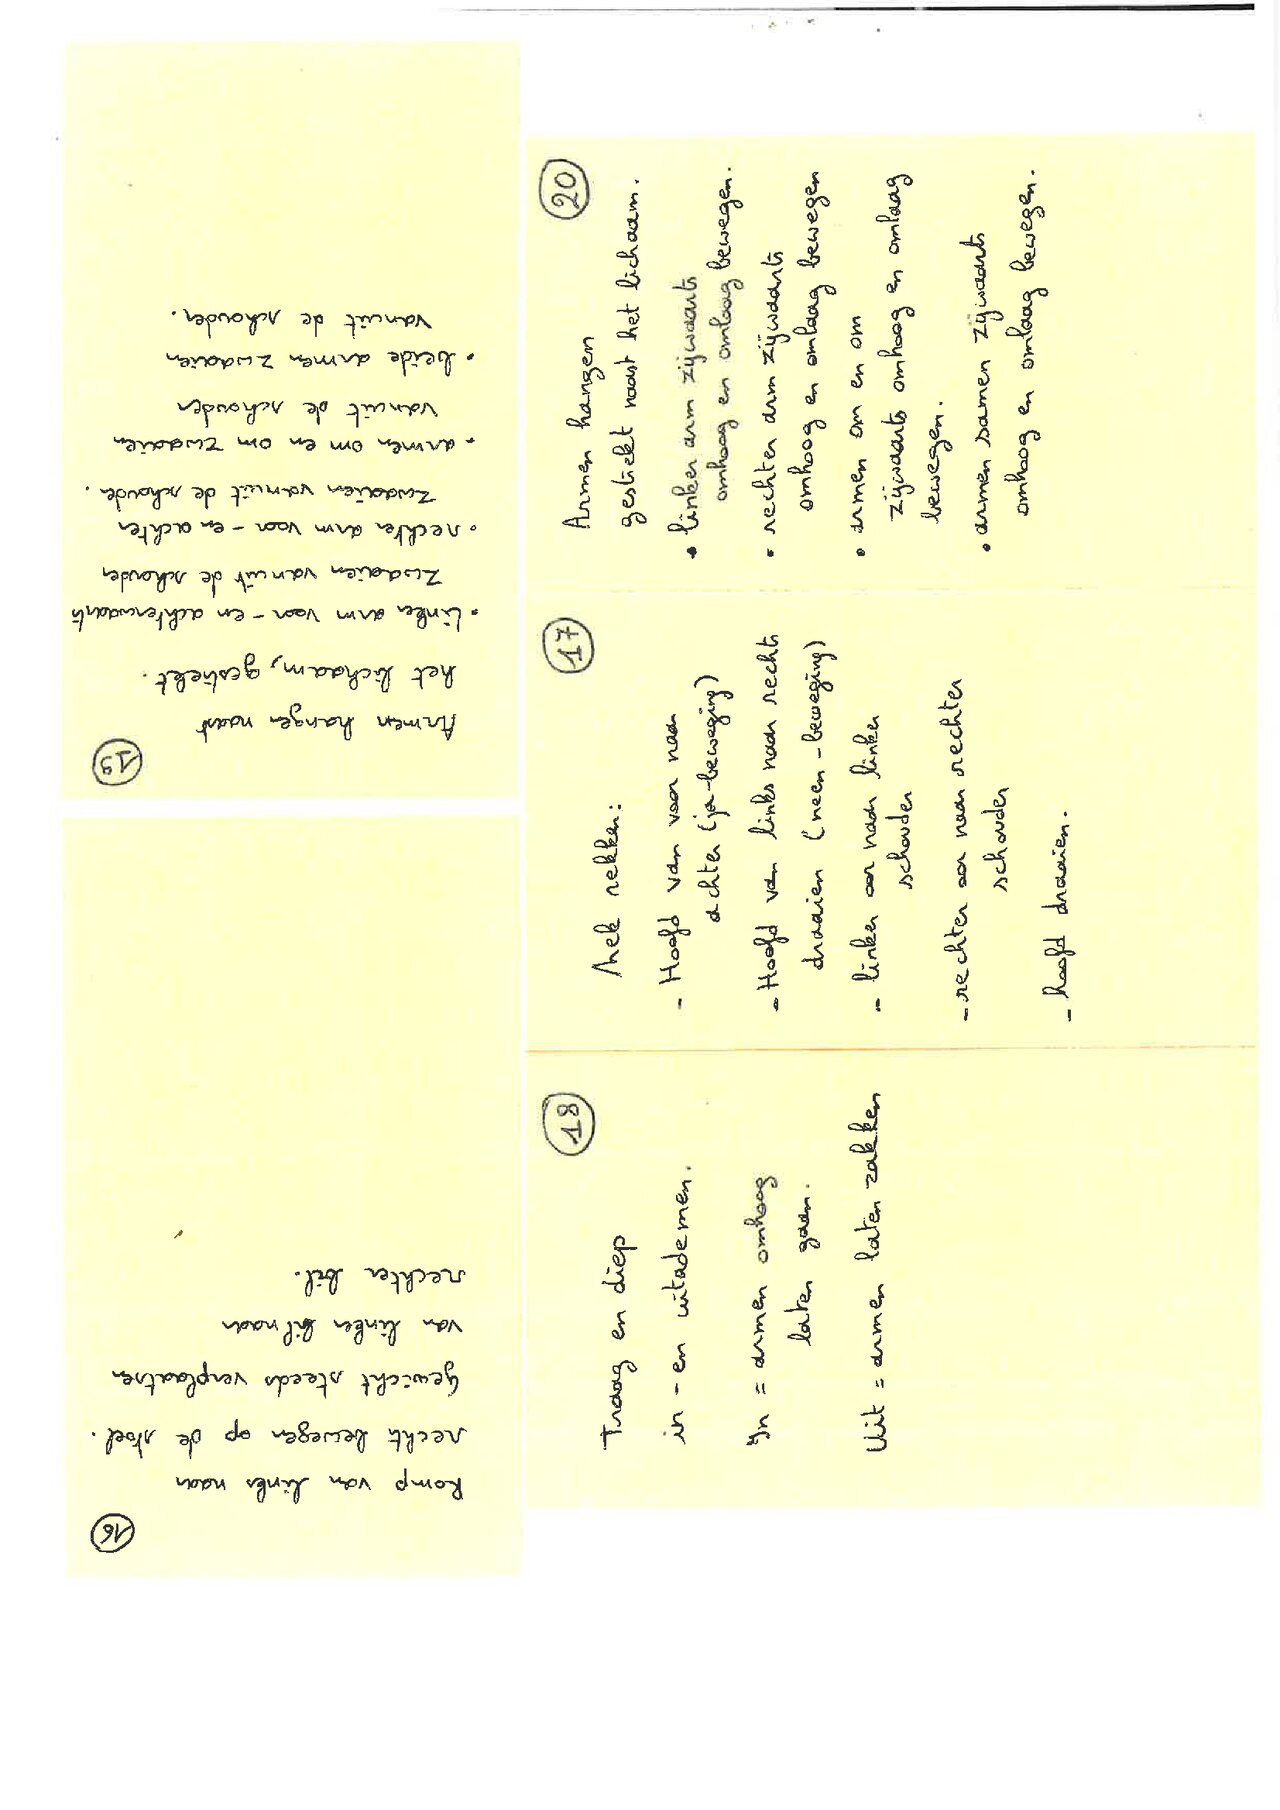 16
Romp van links naar
rechts bewegen op de stoel.
Gewicht steeds verplaatsen
van linker bil naar
rechter bil.
17
Nek rekken:
- Hoofd van voor naar
achter (ja-beweging)
- Hoofd van links naar rechts
draaien (neen-beweging)
- linker oor naar linker
schouder
- rechter oor naar rechter
schouder
- hoofd draaien.
18
Traag en diep
in - en uitademen.
In = armen omhoog
laten gaan.
Uit = armen laten zakken
19
Armen hangen naast
het lichaam, gestrekt.
• linker arm voor - en achterwaarts
zwaaien vanuit de schouder
• rechter arm voor - en achter
zwaaien vanuit de schouder.
• armen om en om zwaaien
vanuit de schouder
• beide armen zwaaien
vanuit de schouder.
20
Armen hangen
gestrekt naast het lichaam.
• linker arm zijwaarts
omhoog en omlaag bewegen.
• rechter arm zijwaarts
omhoog en omlaag bewegen
• armen om en om
zijwaarts omhoog en omlaag
bewegen.
• armen samen zijwaarts
omhoog en omlaag bewegen.